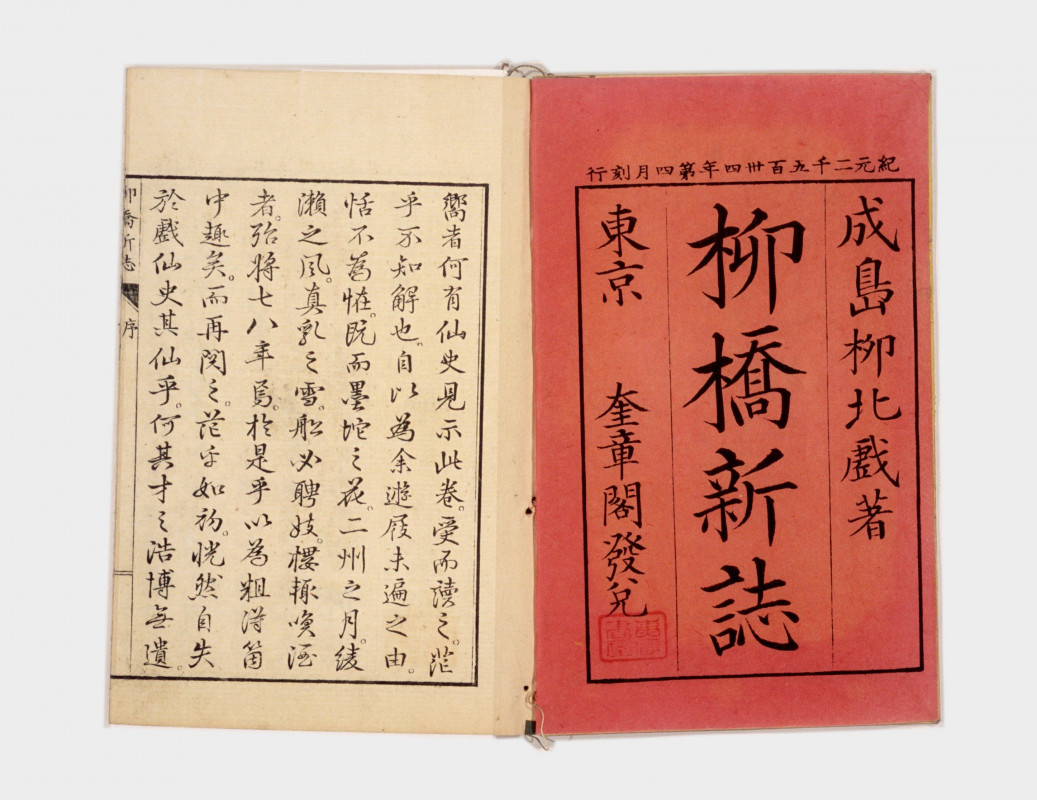 紀元二千五百卅四年第四月刻行
成島柳北戯著
柳橋新誌
東京 奎章閣發兌
嚮者何有仙史見示此卷。受而讀之。茫
乎不知解也。自以為余遊屐未遍之由。
恬不為恠。既而墨坨之花。二州之月。綾
瀬之風。真乳之雪。船必聘妓。樓輙喚酒
者。殆將七八年焉。於是乎以為粗得箇
中趣矣。而再閱之。茫乎如初。恍然自失
於戲仙史其仙乎。何其才之浩博無遺。
柳橋新志 序